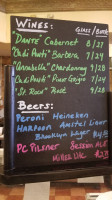 WINES: Glass / Bottle
DANTÉ Cabernet 8/27
"Cadi Ponti" Barbera 7/24
"Annabella" Chardonnay 9/29
"Cadi Ponti" Pinot Grigio 7/24
"St. Roco" Rosé 9/28
Beers:
Peroni Heineken
HARPOON Amstel Light
Brooklyn Lager
PC Pilsner Session ALE